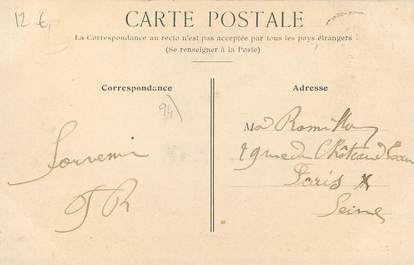 12 €
CARTE POSTALE
La Correspondance au recto n'est pas acceptée par tous les pays étrangers
(Se renseigner à la Poste)
Correspondance
94
Souvenir
Adresse
rue du Château d'eau
Paris X
Seine